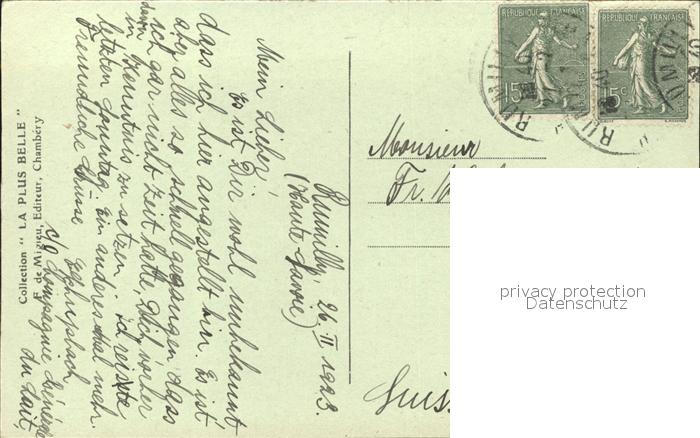 Rumilly, 26. II 1923.
(Haute-Savoie)
Mein Lieber!
Es ist Dir wohl unbekannt
dass ich hier angestellt bin. Es ist
aber alles so schnell gegangen, dass
ich gar nicht Zeit hatte, Dich vorher
davon
in Kenntnis zu setzen. Ich reiste
letzten Sonntag. Ein anderes Mal mehr.
Freundliche Grüsse
c/o Compagnie Générale
du Lait,
Collection "LA PLUS BELLE"
F. de Migieu, Editeur, Chambéry
REPUBLIQUE FRANÇAISE
15c
REPUBLIQUE FRANÇAISE
15c
RUMILLY
Monsieur
Fr.
Suisse
privacy protection
Datenschutz